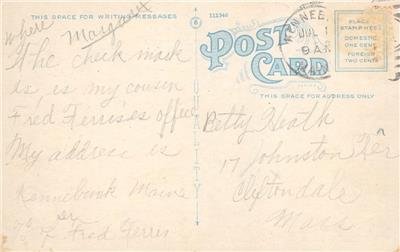 THIS SPACE FOR WRITING MESSAGES
111346
where Margaret
The check mark
is is my cousin
Fred Ferris's office
My address is
Kennebunk Maine
% Fred Ferris
QUALITY
POST CARD
THIS SPACE FOR ADDRESS ONLY
KENNEB
JUL 1
9 AM
PLACE
STAMP HERE
DOMESTIC
ONE CENT
FOREIGN
TWO CENTS
Betty Heath
17 Johnston Ter
Cliftondale
Mass